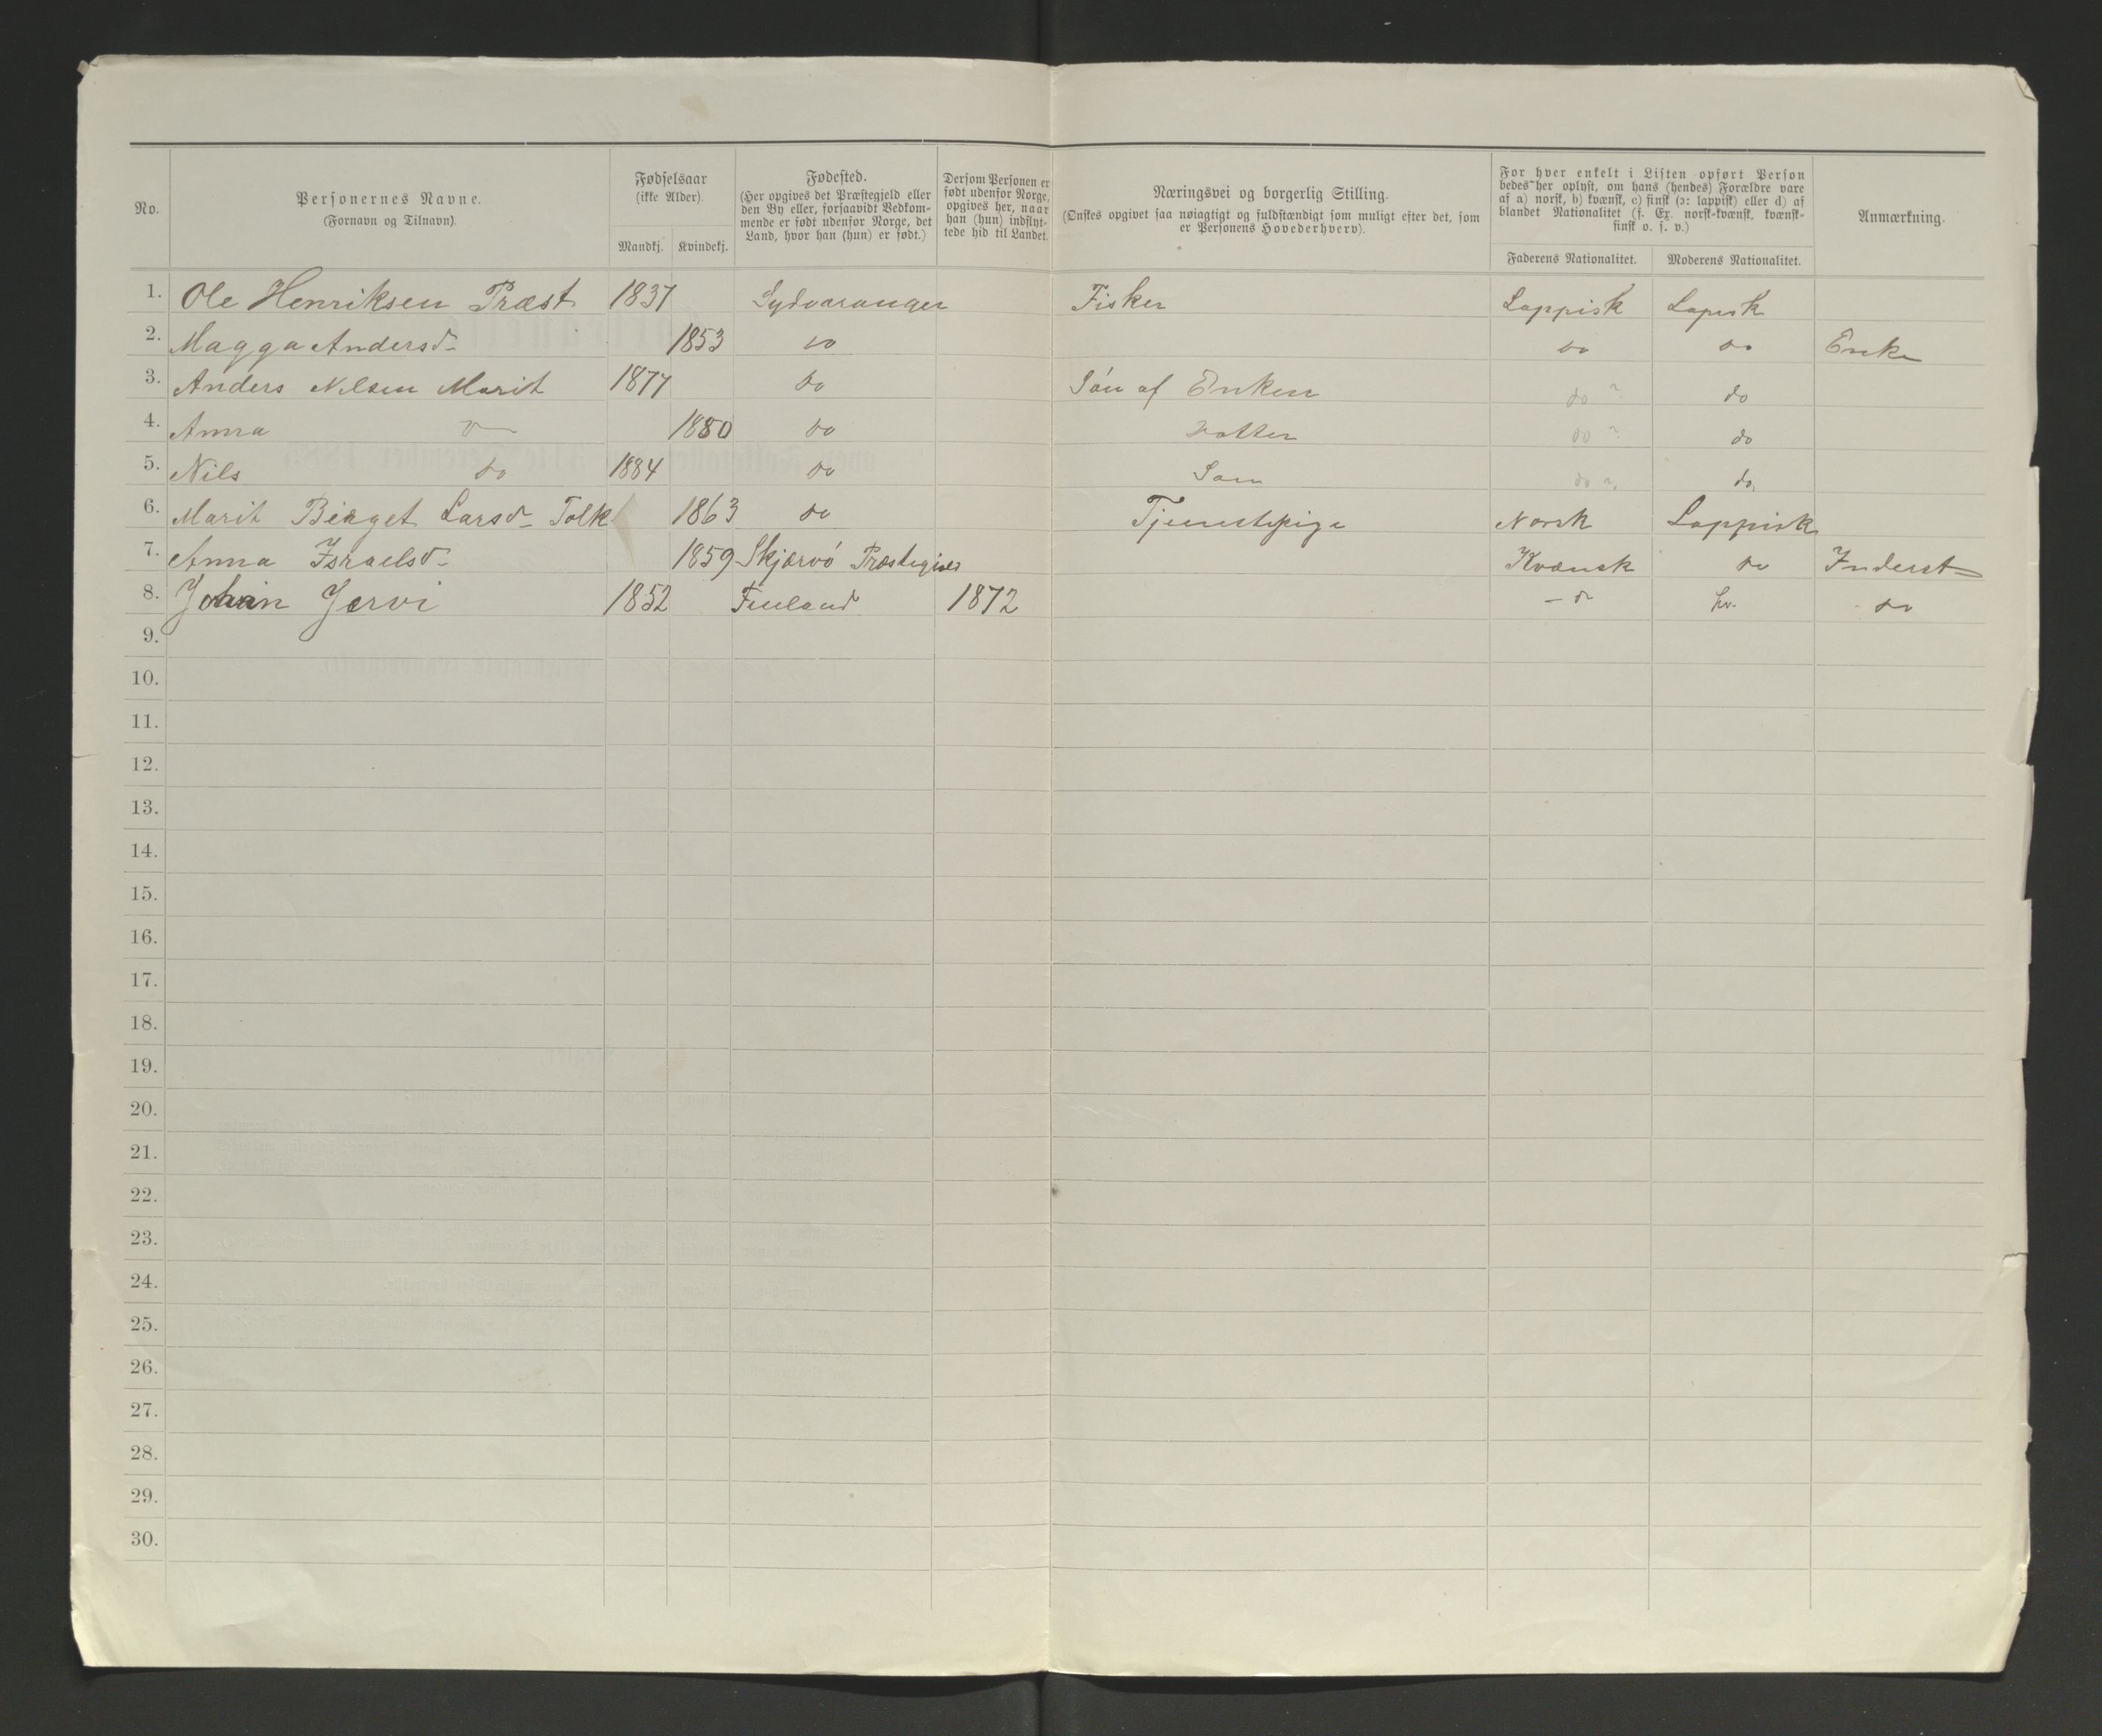 No.
Personernes Navne.
(Fornavn og Tilnavn).
Fødselsaar
(ikke Alder).
Mandkj.
Kvindekj.
Fødested.
(Her opgives det Præstegjeld eller
den By eller, forsaavidt Vedkom-
mende er født udenfor Norge, det
Land, hvor han (hun) er født.)
Dersom Personen er
født udenfor Norge,
opgives her, naar
han (hun) indflyt-
tede hid til Landet.
Næringsvei og borgerlig Stilling.
(Ønskes opgivet saa nøiagtigt og fuldstændigt som muligt efter det, som
er Personens Hovederhverv).
For hver enkelt i Listen opført Person
bedes her oplyst, om hans (hendes) Forældre vare
af a) norsk, b) kvænsk, c) finsk (ɔ: lappisk) eller d) af
blandet Nationalitet (f. Ex. norsk-kvænsk, kvænsk-
finsk o. s. v.)
Faderens Nationalitet.
Moderens Nationalitet.
Anmærkning.
1. Ole Henriksen Præst 1837 Sydvaranger Fisker Lappisk Lapisk
2. Magga Andersd. 1853 do do do Enke
3. Anders Nilsen Marit 1877 do Søn af Enken do ? do
4. Anna do 1880 do Datter do ? do
5. Nils do 1884 do Søn do ? do
6. Marit Birget Larsd. Tolk 1863 do Tjenestepige Norsk Lappisk
7. Anna Israelsd. 1859 Skjærvö Præstegield Kvænsk do Inderst
8. Johan Jervi 1852 Finland 1872 - do kv. do
9.
10.
11.
12.
13.
14.
15.
16.
17.
18.
19.
20.
21.
22.
23.
24.
25.
26.
27.
28.
29.
30.